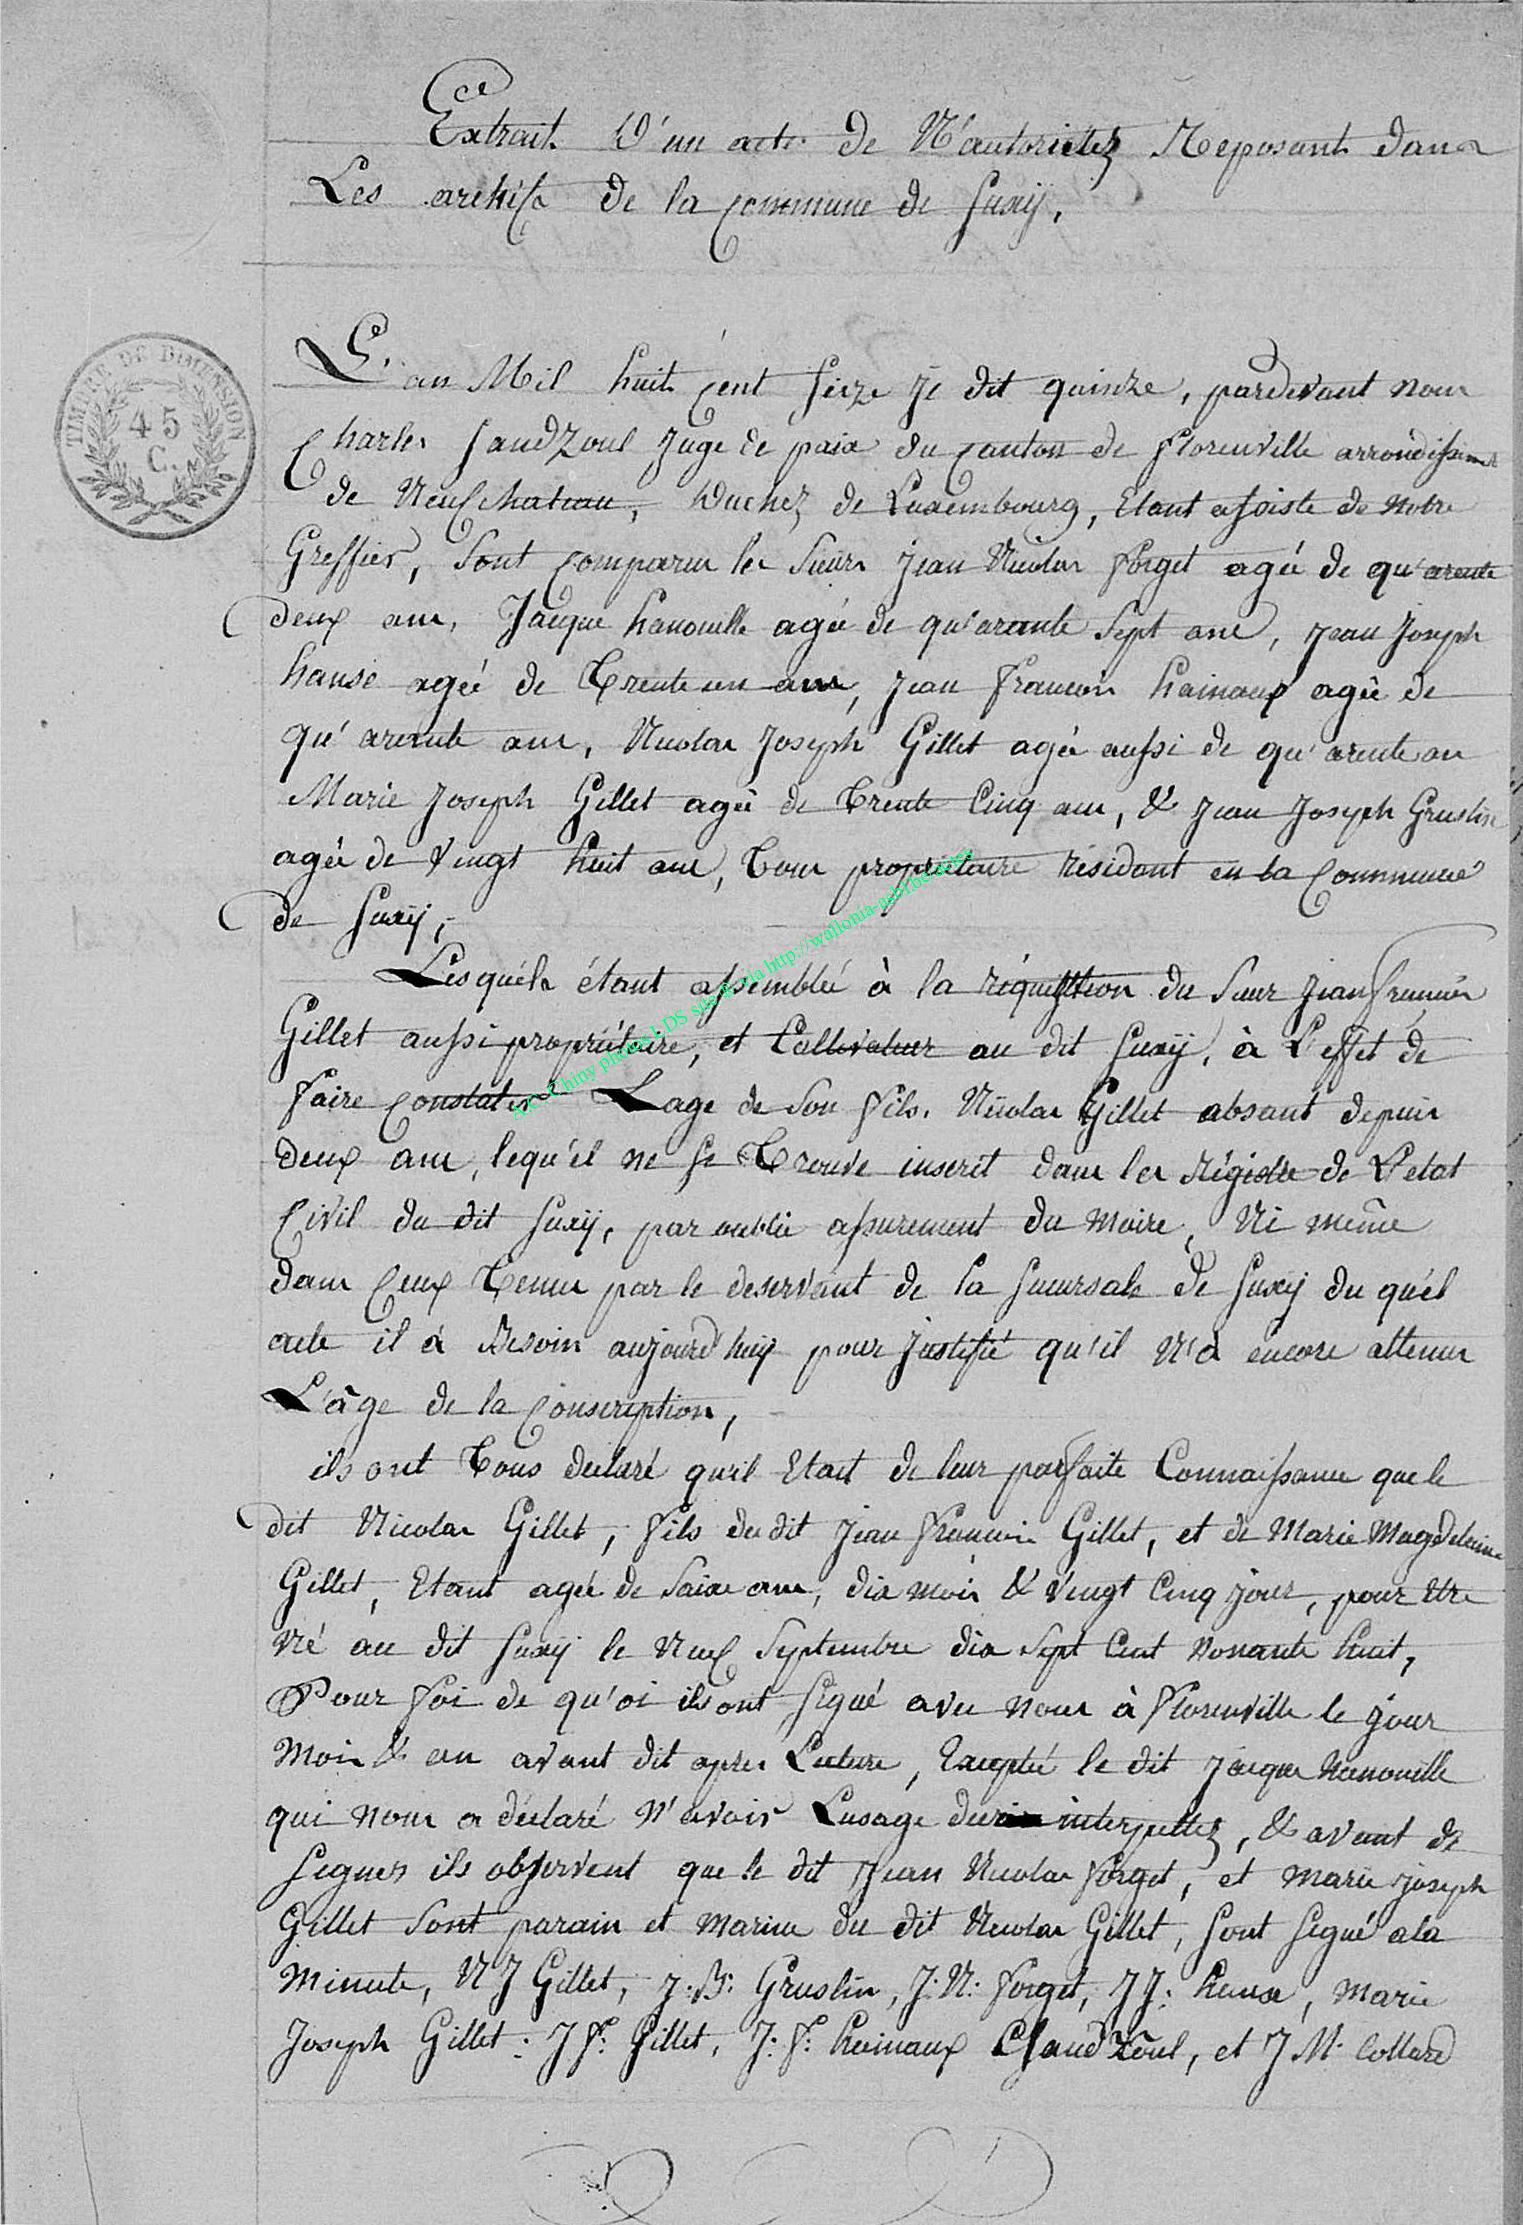 Extrait D'un acte de N'autorietez Reposant dans
Les archifs de la Commune de Suxÿ.
TIMBRE DE DIMENSION
45
C.
L'an Mil huit Cent Seize Je dit quinze, pardevant nous
Charles SandZoul Juge de paix du Canton de florenville arrondissement
de Neufchateau, Duchez de Luxembourg, Etant assiste de Notre
Greffier, Sont Comparus les Sieurs Jean Nicolas forget agée de qu'arente
deux ans, Jacque hanouille agée de qu'arante Sept ans, Jean Joseph
hause agéé de Trente un ans, Jean francois hainaux agée de
qu'arente ans, Nicolas Joseph Gillet agée aussi de qu'arente an
Marie Joseph Gillet agée de Trente Cinq ans, & Jean Joseph Gruslin
agée de Vingt huit ans, Tous proprietaire résidant en la Commune
de Suxÿ,
Lesquéls étant assemblée à la réquisition du Sieur Jean francois
Gillet aussi propriétaire, et Cultivateur au dit Suxÿ, à L'effet de
faire Constater Lage de Son fils. Nicolas Gillet absant depuis
deux ans, lequ'el ne Se Trouve inscrit dans les régistre de L'etat
Civil du dit Suxÿ, par oublie assurement du Maire, Ni même
dans Ceux Tenus par le deservant de la Sucursale de Suxÿ du qu'el
acte il à Besoin aujourd'huÿ pour Justifié qu'il N'à encore attenus
L'âge de la Conscription,
ils ont Tous déclaré qu'il Etait de leur parfaite Connaissance que le
dit Nicolas Gillet, fils du dit Jean francois Gillet, et de Marie Magdeleine
Gillet, Etant agée de Saixe ans, dix mois & Vingt Cinq jours, pour Etre
Né au dit Suxÿ le Neuf Septembre dix Sept Cent Nonante huit,
Pour foi de qu'oi ils ont Signé avec nous à florenville le jour
Mois & an avant dit apres Lecture, Exceptée le dit Jacque hanouille
qui nous a déclaré N'avoir Lusage interpellez, & avant de
Signer ils observent que le dit Jean Nicolas forget, et Marie Joseph
Gillet Sont parain et Marine du dit Nicolas Gillet, Sont Signé a la
Minute, N J Gillet, J: B: Gruslin, J: N: forget, J J: hause, Marie
Joseph Gillet: J f: Gillet, J: f: hainaux CSandZoul, et J M. Collard